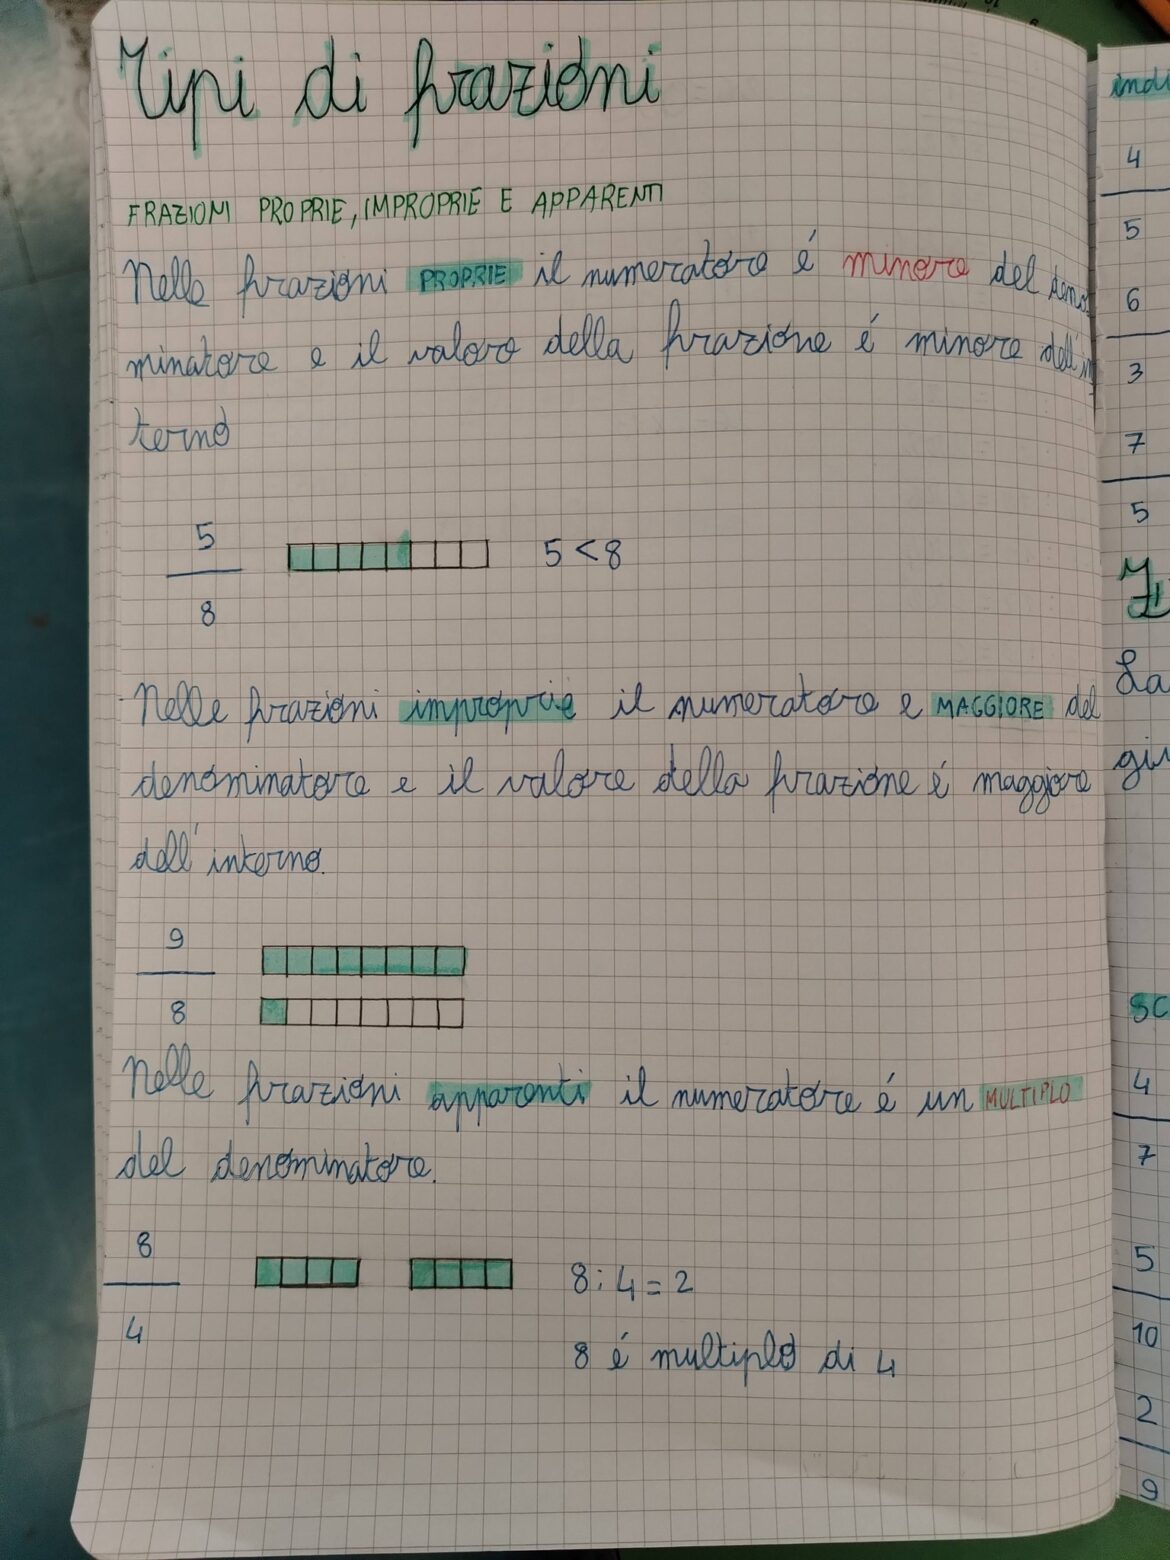 Tipi di frazioni
FRAZIONI PROPRIE, IMPROPRIE E APPARENTI
Nelle frazioni PROPRIE il numeratore é minore del deno
minatore e il valore della frazione é minore dell'in
terno
5
8
5 < 8
Nelle frazioni improprie il numeratore e MAGGIORE del
denominatore e il valore della frazione é maggiore
dell'interno.
9
8
Nelle frazioni apparenti il numeratore é un MULTIPLO
del denominatore.
8
4
8 : 4 = 2
8 é multiplo di 4
indi
4
5
6
3
7
5
La
giu
SC
4
7
5
10
2
9